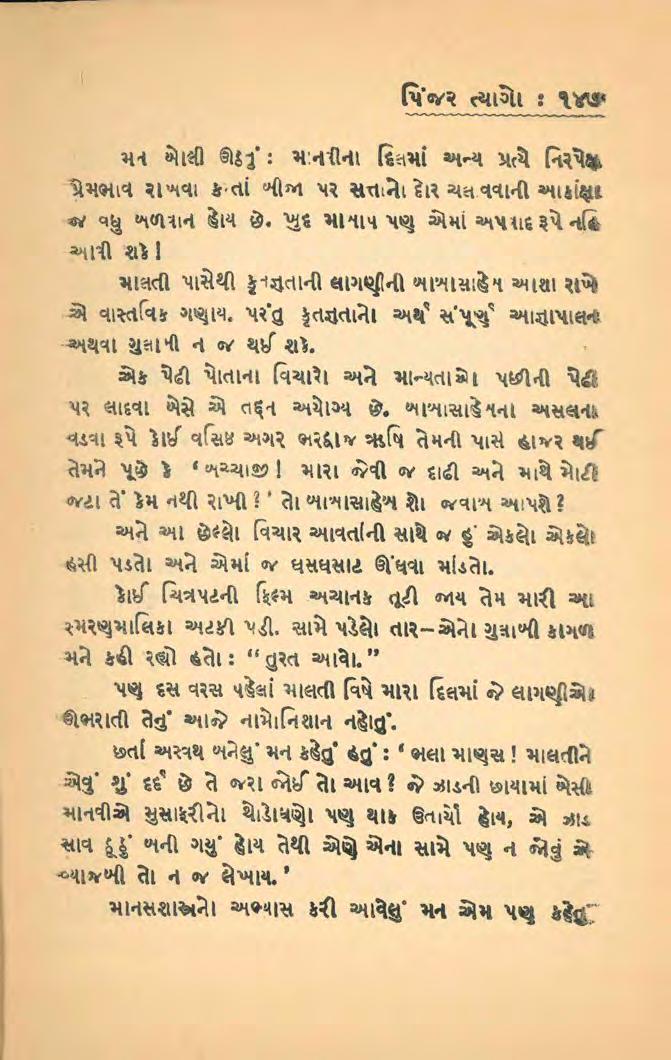 પિંજર ત્યાગો : ૧૪૭
મન બોલી ઊઠતું : માનવીના દિલમાં અન્ય પ્રત્યે નિરપેક્ષ
પ્રેમભાવ રાખવા કરતાં બીજા પર સત્તાનો દોર ચલાવવાની આકાંક્ષા
જ વધુ બળવાન હોય છે. ખુદ માબાપ પણ એમાં અપવાદ રૂપે નહિ
આવી શકે !
માલતી પાસેથી કૃતજ્ઞતાની લાગણીની બાબાસાહેબ આશા રાખે
એ વાસ્તવિક ગણાય. પરંતુ કૃતજ્ઞતાનો અર્થ સંપૂર્ણ આજ્ઞાપાલન
અથવા ગુલામી ન જ થઈ શકે.
એક પેઢી પોતાના વિચારો અને માન્યતાઓ પછીની પેઢી
પર લાદવા બેસે એ તદ્દન અયોગ્ય છે. બાબાસાહેબના અસલના
વડવા રૂપે કોઈ વસિષ્ઠ અગર ભરદ્વાજ ઋષિ તેમની પાસે હાજર થઈ
તેમને પૂછે કે ‘ બચ્ચાજી ! મારા જેવી જ દાઢી અને માથે મોટી
જટા તેં કેમ નથી રાખી ? ’ તો બાબાસાહેબ શો જવાબ આપશે ?
અને આ છેલ્લો વિચાર આવતાંની સાથે જ હું એકલો એકલો
હસી પડતો અને એમાં જ ઘસઘસાટ ઊંઘવા માંડતો.
કોઈ ચિત્રપટની ફિલ્મ અચાનક તૂટી જાય તેમ મારી આ
સ્મરણમાલિકા અટકી પડી. સામે પડેલો તાર–એનો ગુલાબી કાગળ
મને કહી રહ્યો હતો : “ તુરત આવો. ”
પણ દસ વરસ પહેલાં માલતી વિષે મારા દિલમાં જે લાગણીઓ
ઊભરાતી તેનું આજે નામોનિશાન નહોતું.
છતાં અસ્વથ બનેલું મન કહેતું હતું : ‘ ભલા માણસ ! માલતીને
એવું શું દર્દ છે તે જરા જોઈ તો આવ ? જે ઝાડની છાયામાં બેસી
માનવીએ મુસાફરીનો થોડોઘણો પણ થાક ઉતાર્યો હોય, એ ઝાડ
સાવ ઠૂઠું બની ગયું હોય તેથી એણે એના સામે પણ ન જોવું એ
વ્યાજબી તો ન જ લેખાય. ’
માનસશાસ્ત્રનો અભ્યાસ કરી આવેલું મન એમ પણ કહેતું